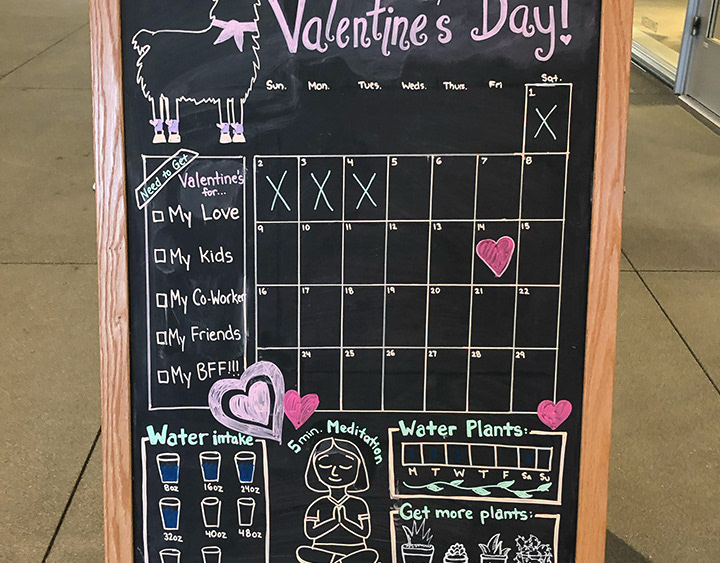 Valentine's Day!
Sun. Mon. Tues. Weds. Thurs. Fri Sat.
1
2 3 4 5 6 7 8
9 10 11 12 13 14 15
16 17 18 19 20 21 22
24 25 26 27 28 29
Need to Get
Valentine's
for...
My Love
My kids
My Co-Worker
My Friends
My BFF!!!
Water intake
8oz 16oz 24oz
32oz 40oz 48oz
5 min. Meditation
Water Plants:
M T W T F Sa Su
Get more plants: